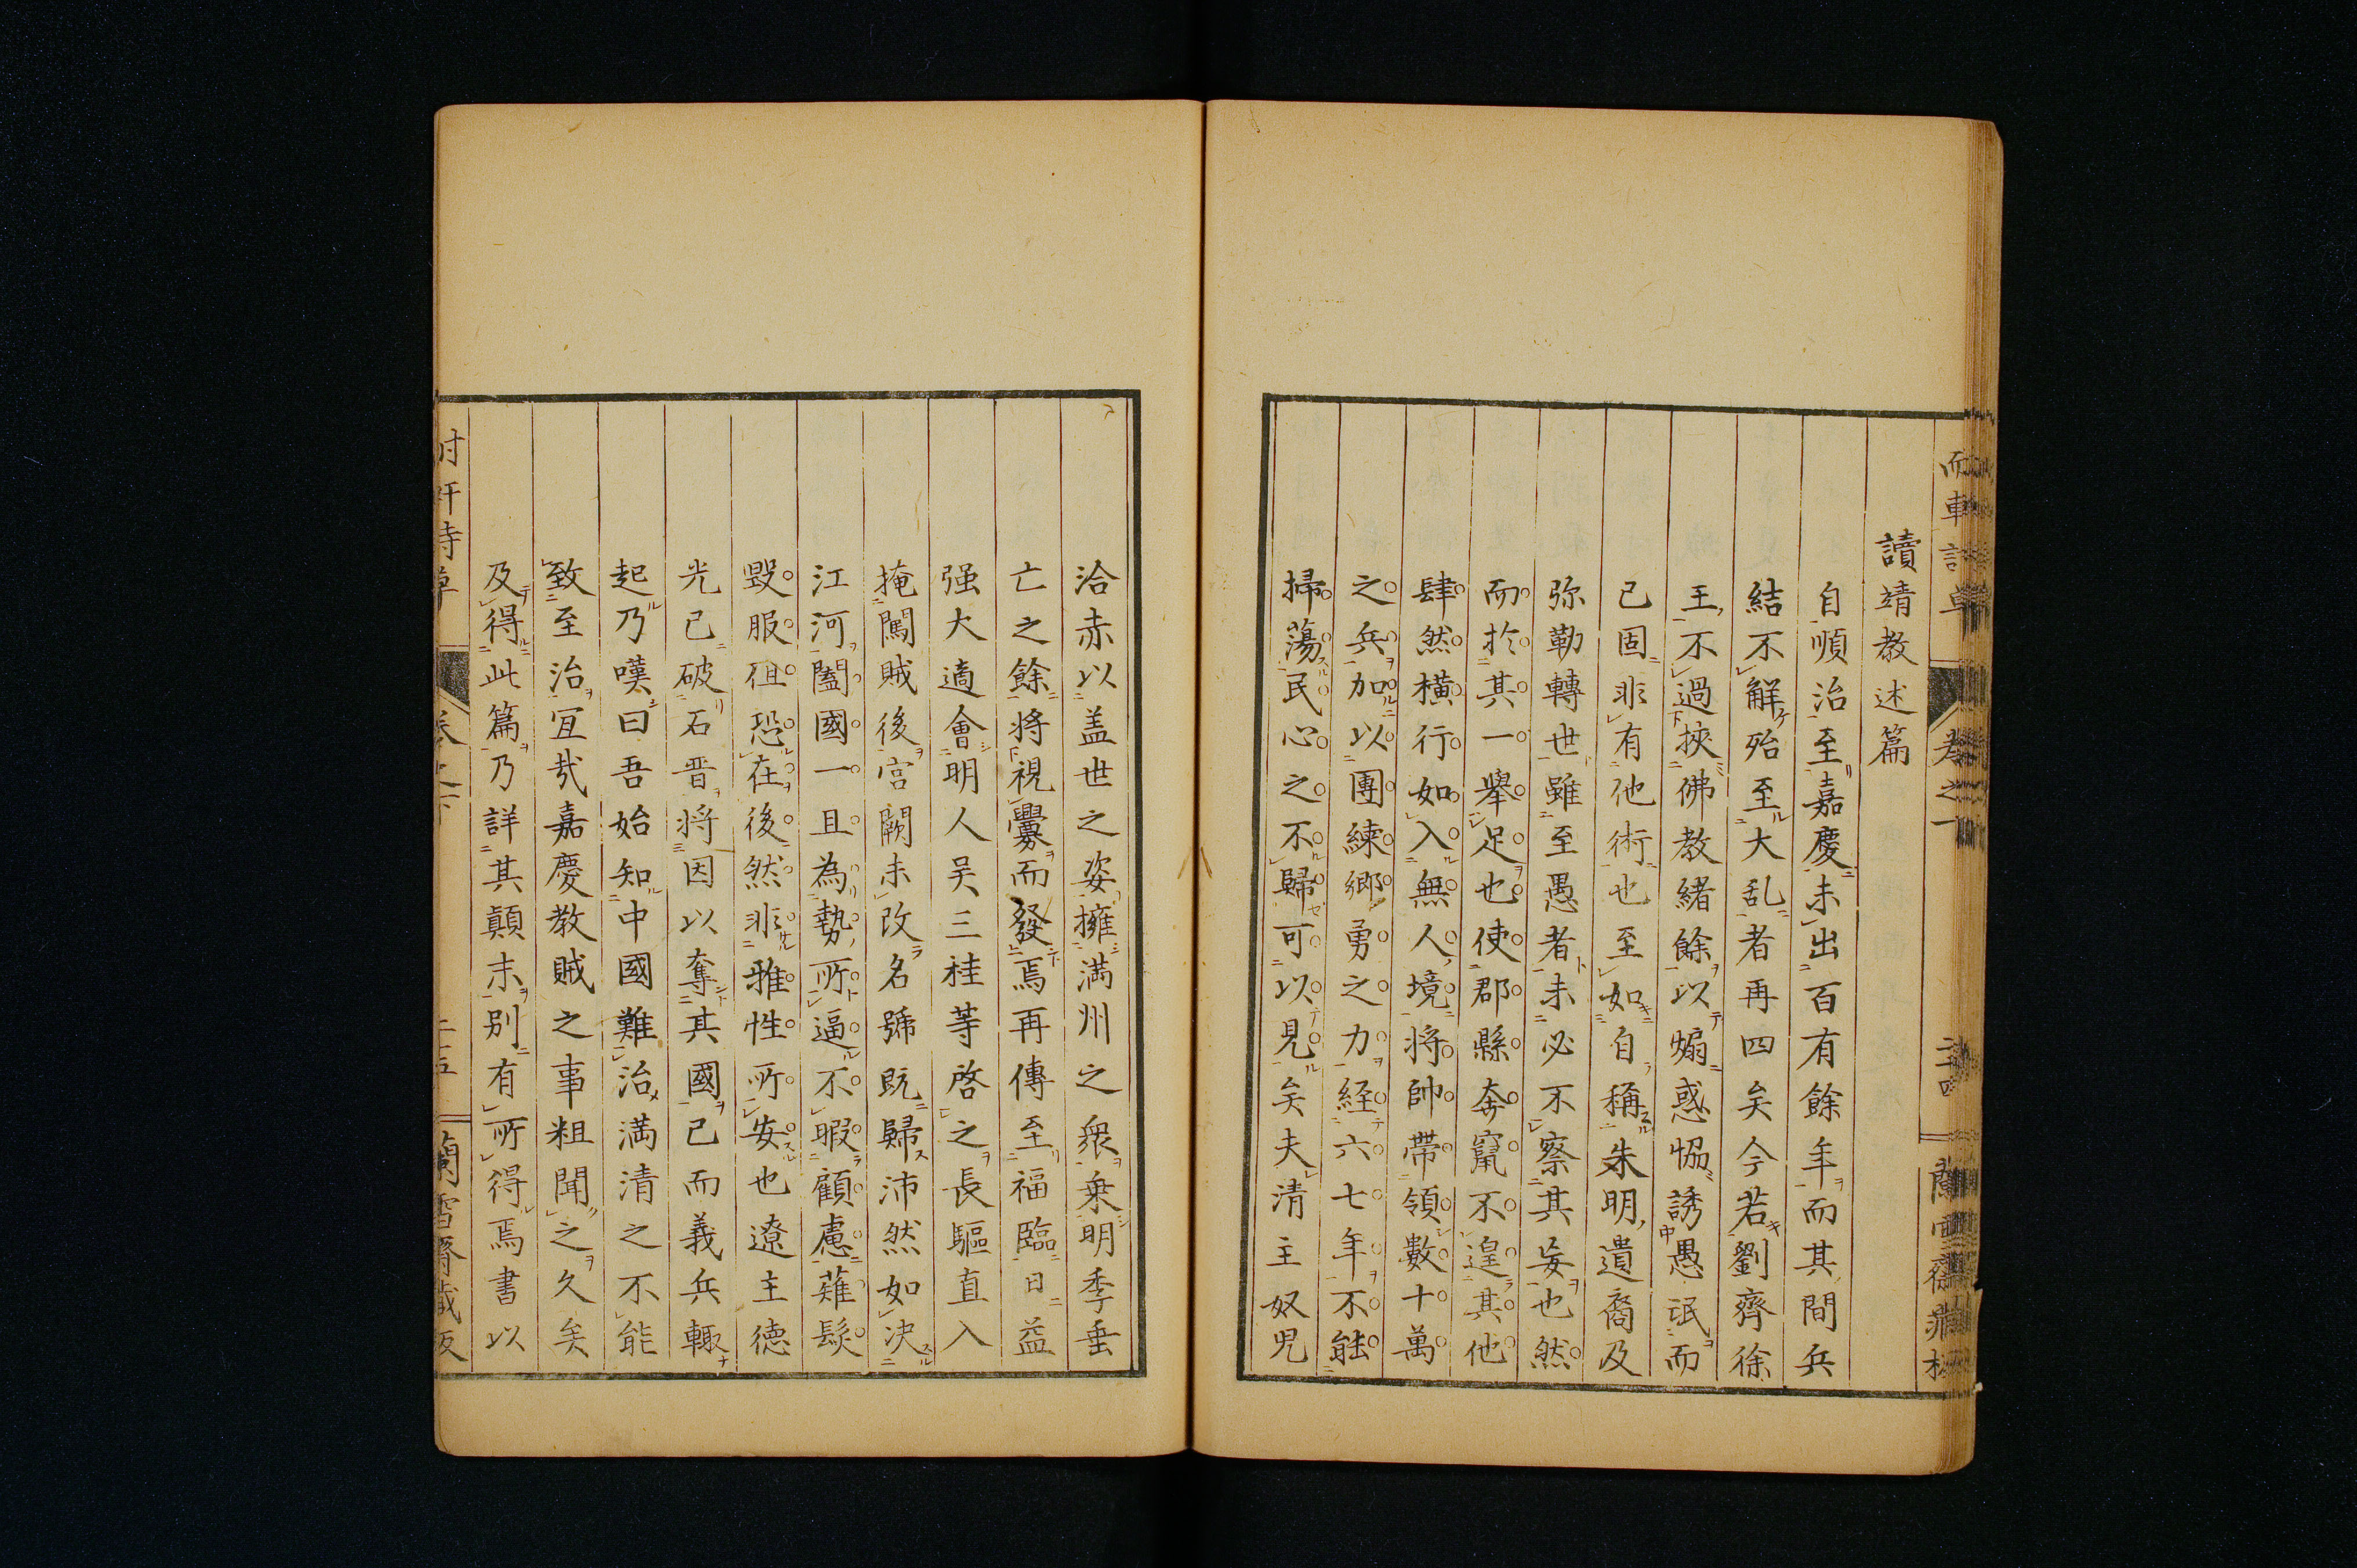 讀靖教述篇
自順治至嘉慶未出百有餘年而其間兵
結不解殆至大乱者再四矣今若劉齊徐
王不過挾佛教緒餘以煽惑恊誘愚氓而
已固非有他術也至如自稱朱明遺裔及
弥勒轉世雖至愚者未必不察其妄也然
而於其一舉足也使郡縣奔竄不遑其他
肆然橫行如入無人境将帥帶領數十萬
之兵加以團練鄉勇之力経六七年不能
掃蕩民心之不歸可以見矣夫清主奴児
洽赤以盖世之姿擁満州之衆乗明季垂
亡之餘将視釁而發焉再傳至福臨日益
强大適會明人吴三桂等啓之長驅直入
掩闖賊後宮闕未改名號既歸沛然如決
江河闔國一旦為勢所逼不暇顧慮薙髮
毀服徂恐在後然非雅性所安也遼主徳
光已破石晋将因以奪其國已而義兵輙
起乃嘆曰吾始知中國難治満清之不能
致至治冝㢤嘉慶教賊之事粗聞之久矣
及得此篇乃詳其顛末別有所得焉書以